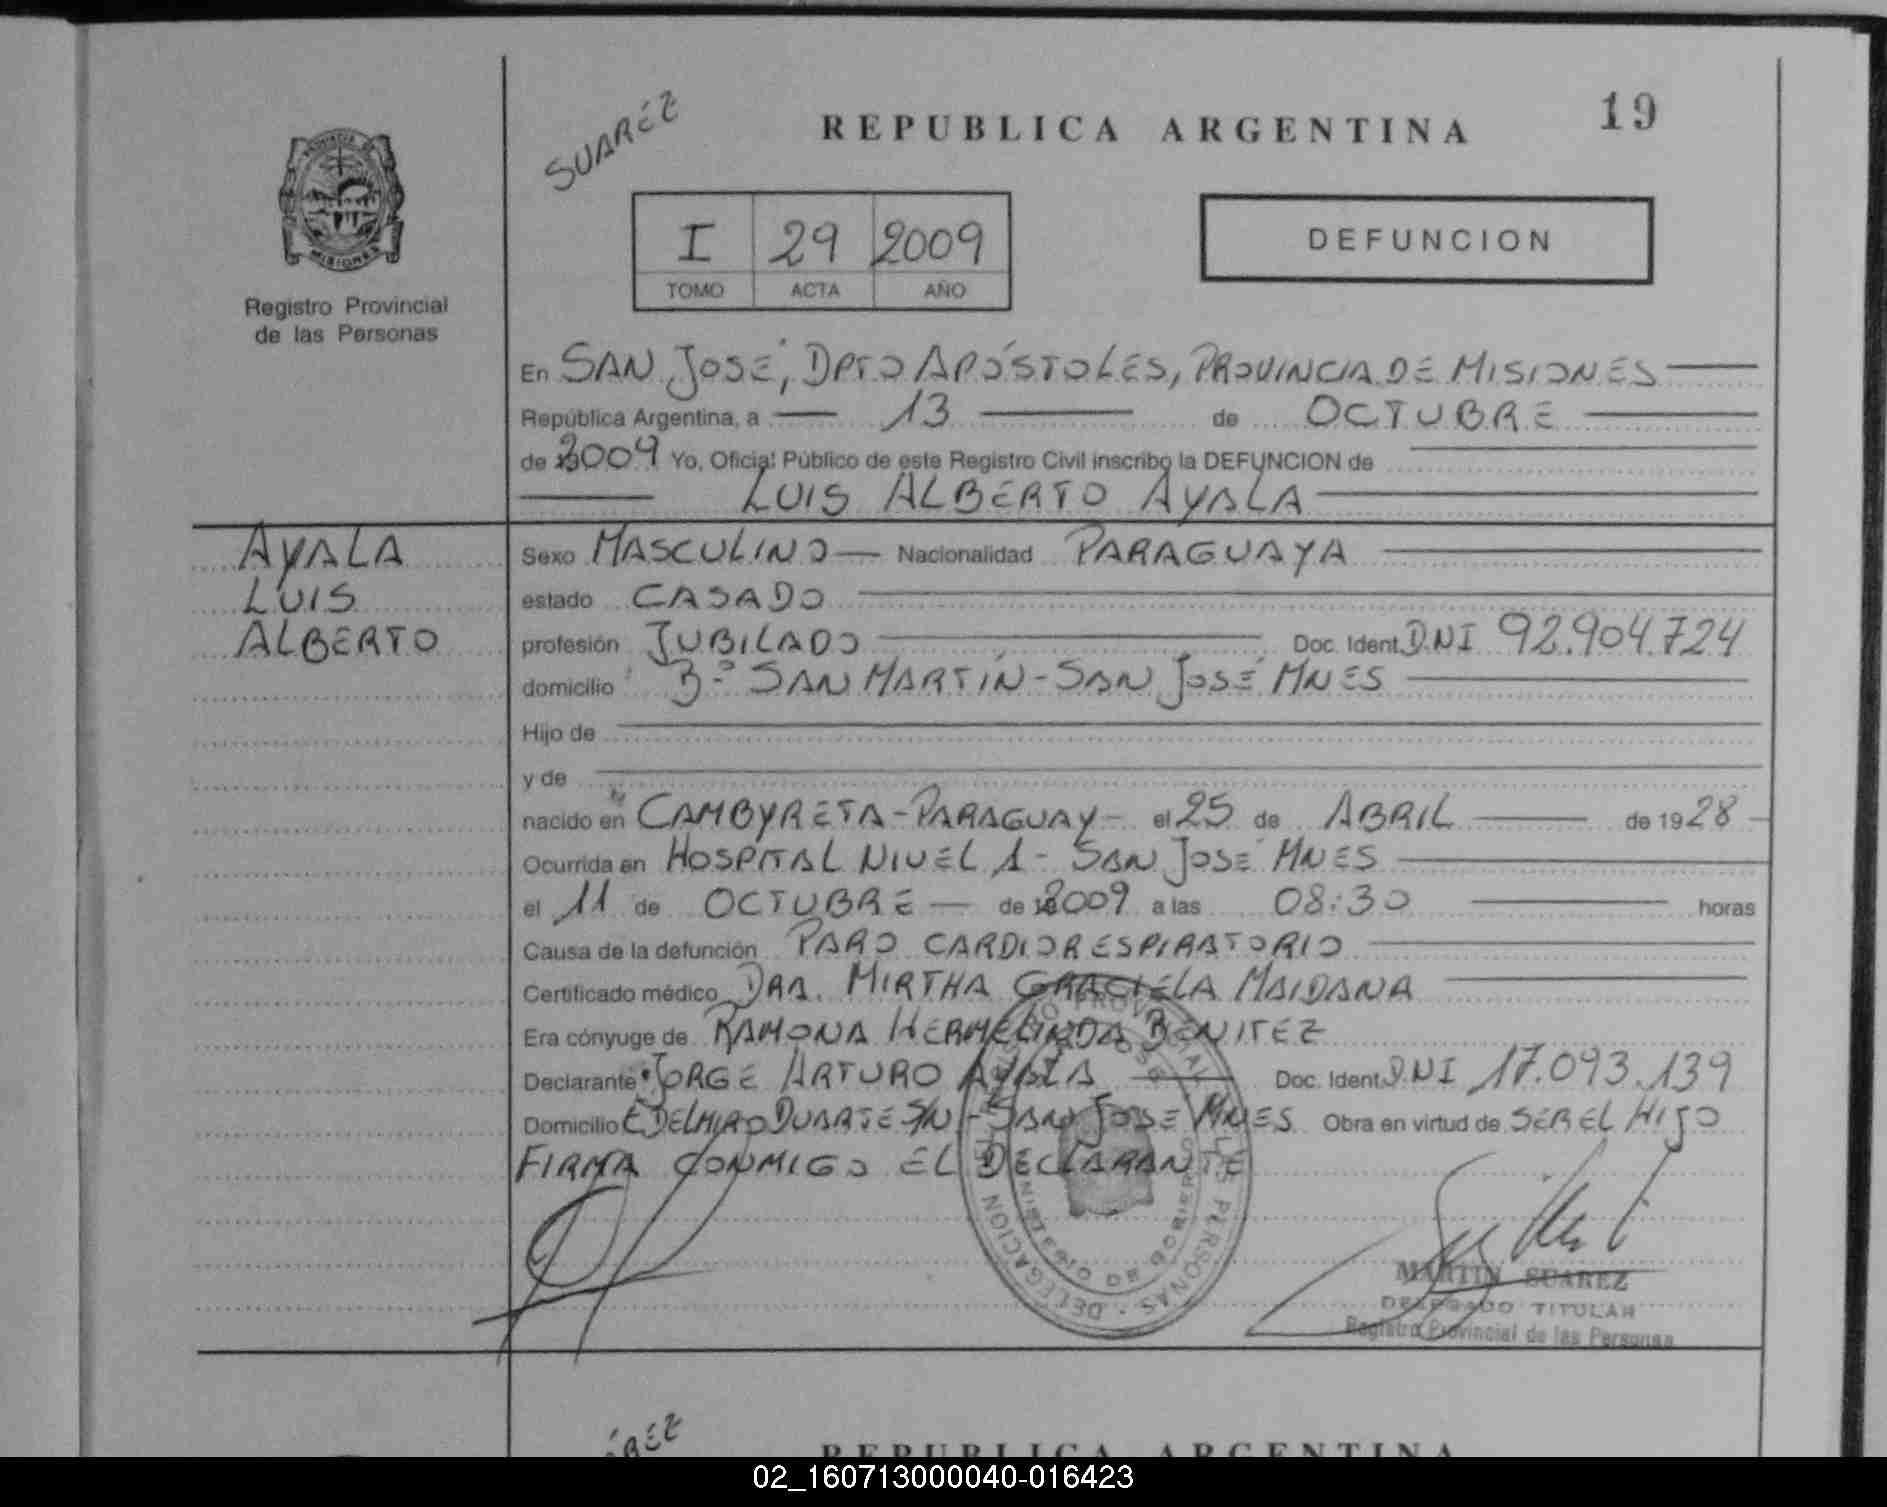 SUARÉZ
REPUBLICA ARGENTINA
19
PROVINCIA DE
MISIONES
Registro Provincial
de las Personas
I 29 2009
TOMO ACTA AÑO
DEFUNCION
En SAN JOSÉ, DPTO APÓSTOLES, PROVINCIA DE MISIONES
República Argentina, a 13 de OCTUBRE
de 2009 Yo, Oficial Público de este Registro Civil inscribo la DEFUNCION de
LUIS ALBERTO AYALA
AYALA
LUIS
ALBERTO
Sexo MASCULINO Nacionalidad PARAGUAYA
estado CASADO
profesión JUBILADO Doc. Ident. D.N.I 92.904.724
domicilio Bº SAN MARTÍN - SAN JOSÉ MNES
Hijo de
y de
nacido en CAMBYRETA - PARAGUAY - el 25 de ABRIL de 1928
Ocurrida en HOSPITAL NIVEL 1 - SAN JOSÉ MNES
el 11 de OCTUBRE de 2009 a las 08:30 horas
Causa de la defunción PARO CARDIORESPIRATORIO
Certificado médico DRA. MIRTHA GRACIELA MAIDANA
Era cónyuge de RAMONA HERMELINDA BENITEZ
Declarante JORGE ARTURO AYALA Doc. Ident. D.N.I 17.093.139
Domicilio EDELMIRO DUARTE S/N - SAN JOSE MNES Obra en virtud de SER EL HIJO
FIRMA CONMIGO EL DECLARANTE
MARTIN SUAREZ
DELEGADO TITULAR
Registro Provincial de las Personas
REPUBLICA ARGENTINA
02_160713000040-016423